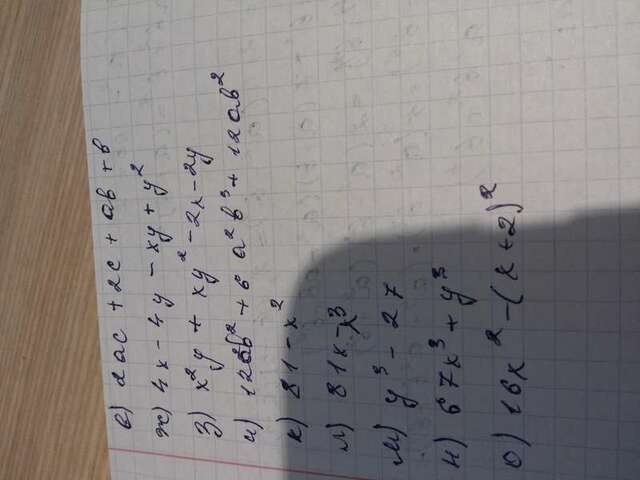 е) 2ac + 2c + ab + b
ж) 4x - 4y - xy + y²
з) x²y + xy² - 2x - 2y
и) 12ab² + 6a²b³ + 12ab²
к) 81 - x²
л) 81x - x³
м) y³ - 27
н) 67x³ + y³
о) 16x² - (x + 2)²